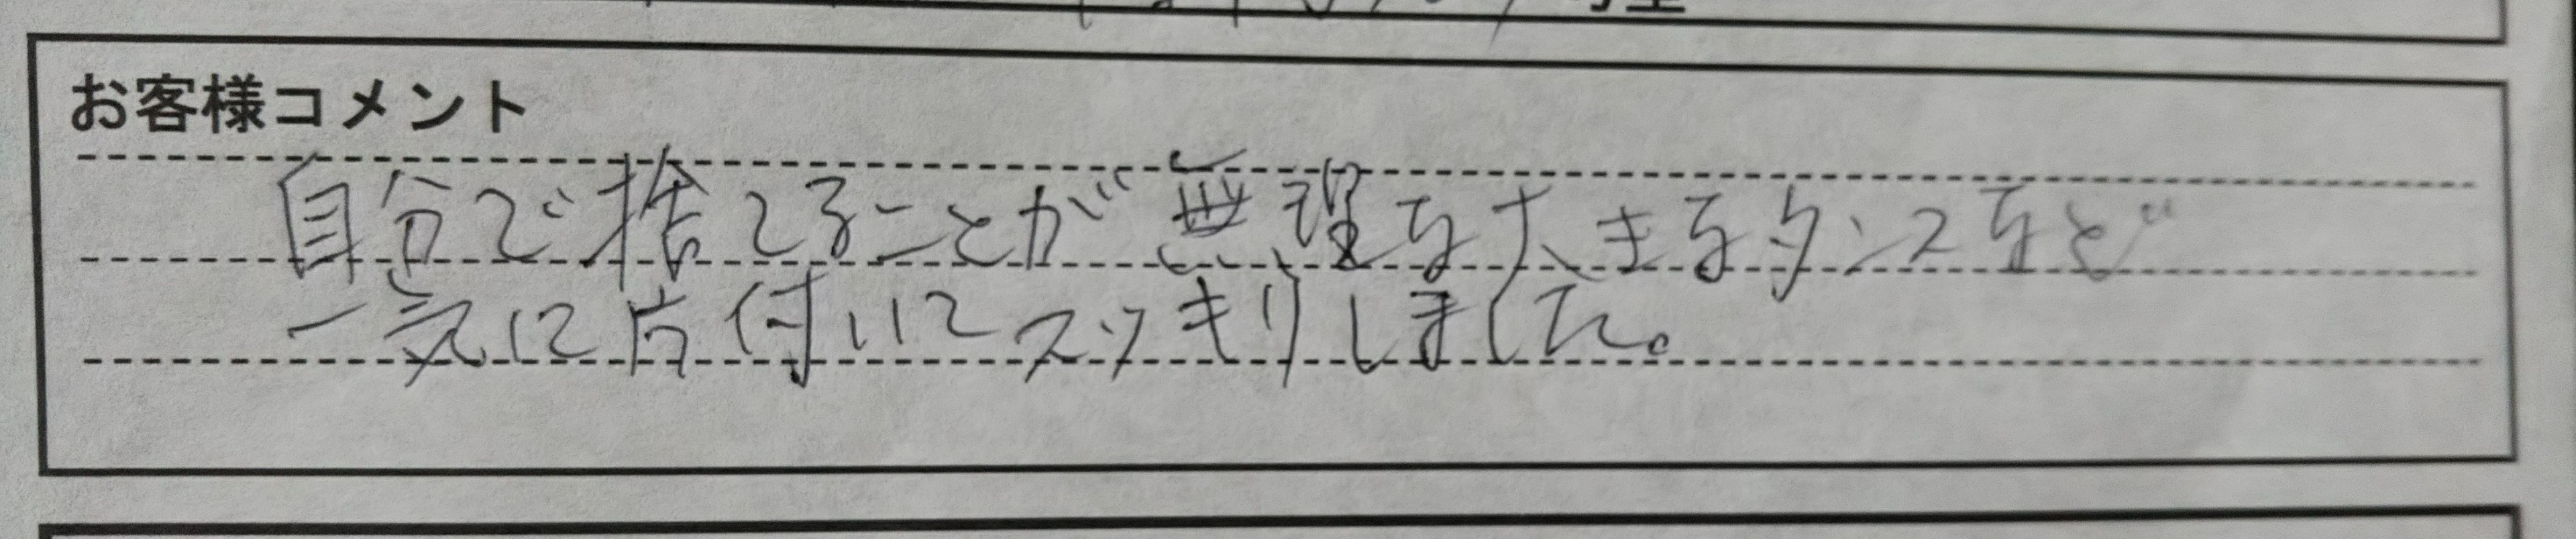 お客様コメント
自分で捨てることが無理な大きなタンスなど
一気に片付いてスッキリしました。